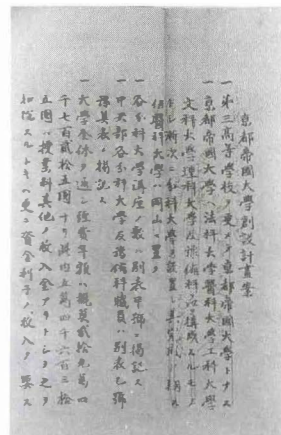 京都帝國大學創設計畫案
一 第三高等學校ヲ更メテ京都帝國大學トナス
一 京都帝國大學ハ法科大學醫科大學工科大學
文科大學理科大學及豫備科ヲ以テ構成スルモノ
トシ漸次ニ分科大學ヲ設置シ
但醫科大學ハ岡山ニ置ク
一 各分科大學講座ノ數ハ別表甲號ニ掲記ス
一 甲大部各分科大學及豫備科職員ハ別表乙號
豫算表ニ掲記ス
一 大學全体ヲ通シ經費年額ハ概算貳拾九萬四
千七百貳拾五圓ナリ其内五萬四千六百三拾
五圓ハ授業料其他ノ收入金アリトシ之ヲ
扣除スルトキハ更ニ資金利子ノ收入ヲ要ス